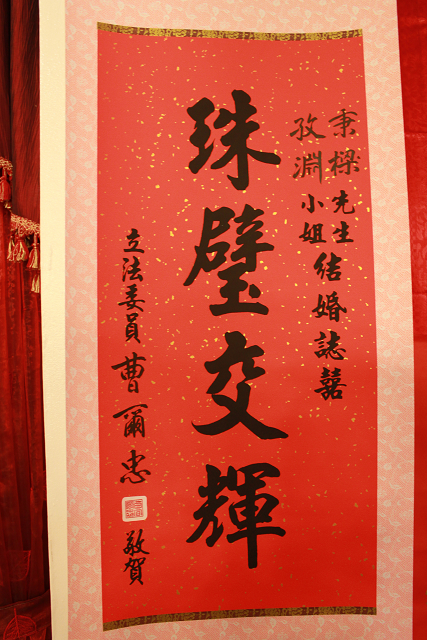 秉樑先生
孜淵小姐
結婚誌囍
珠璧交輝
立法委員曹爾忠敬賀